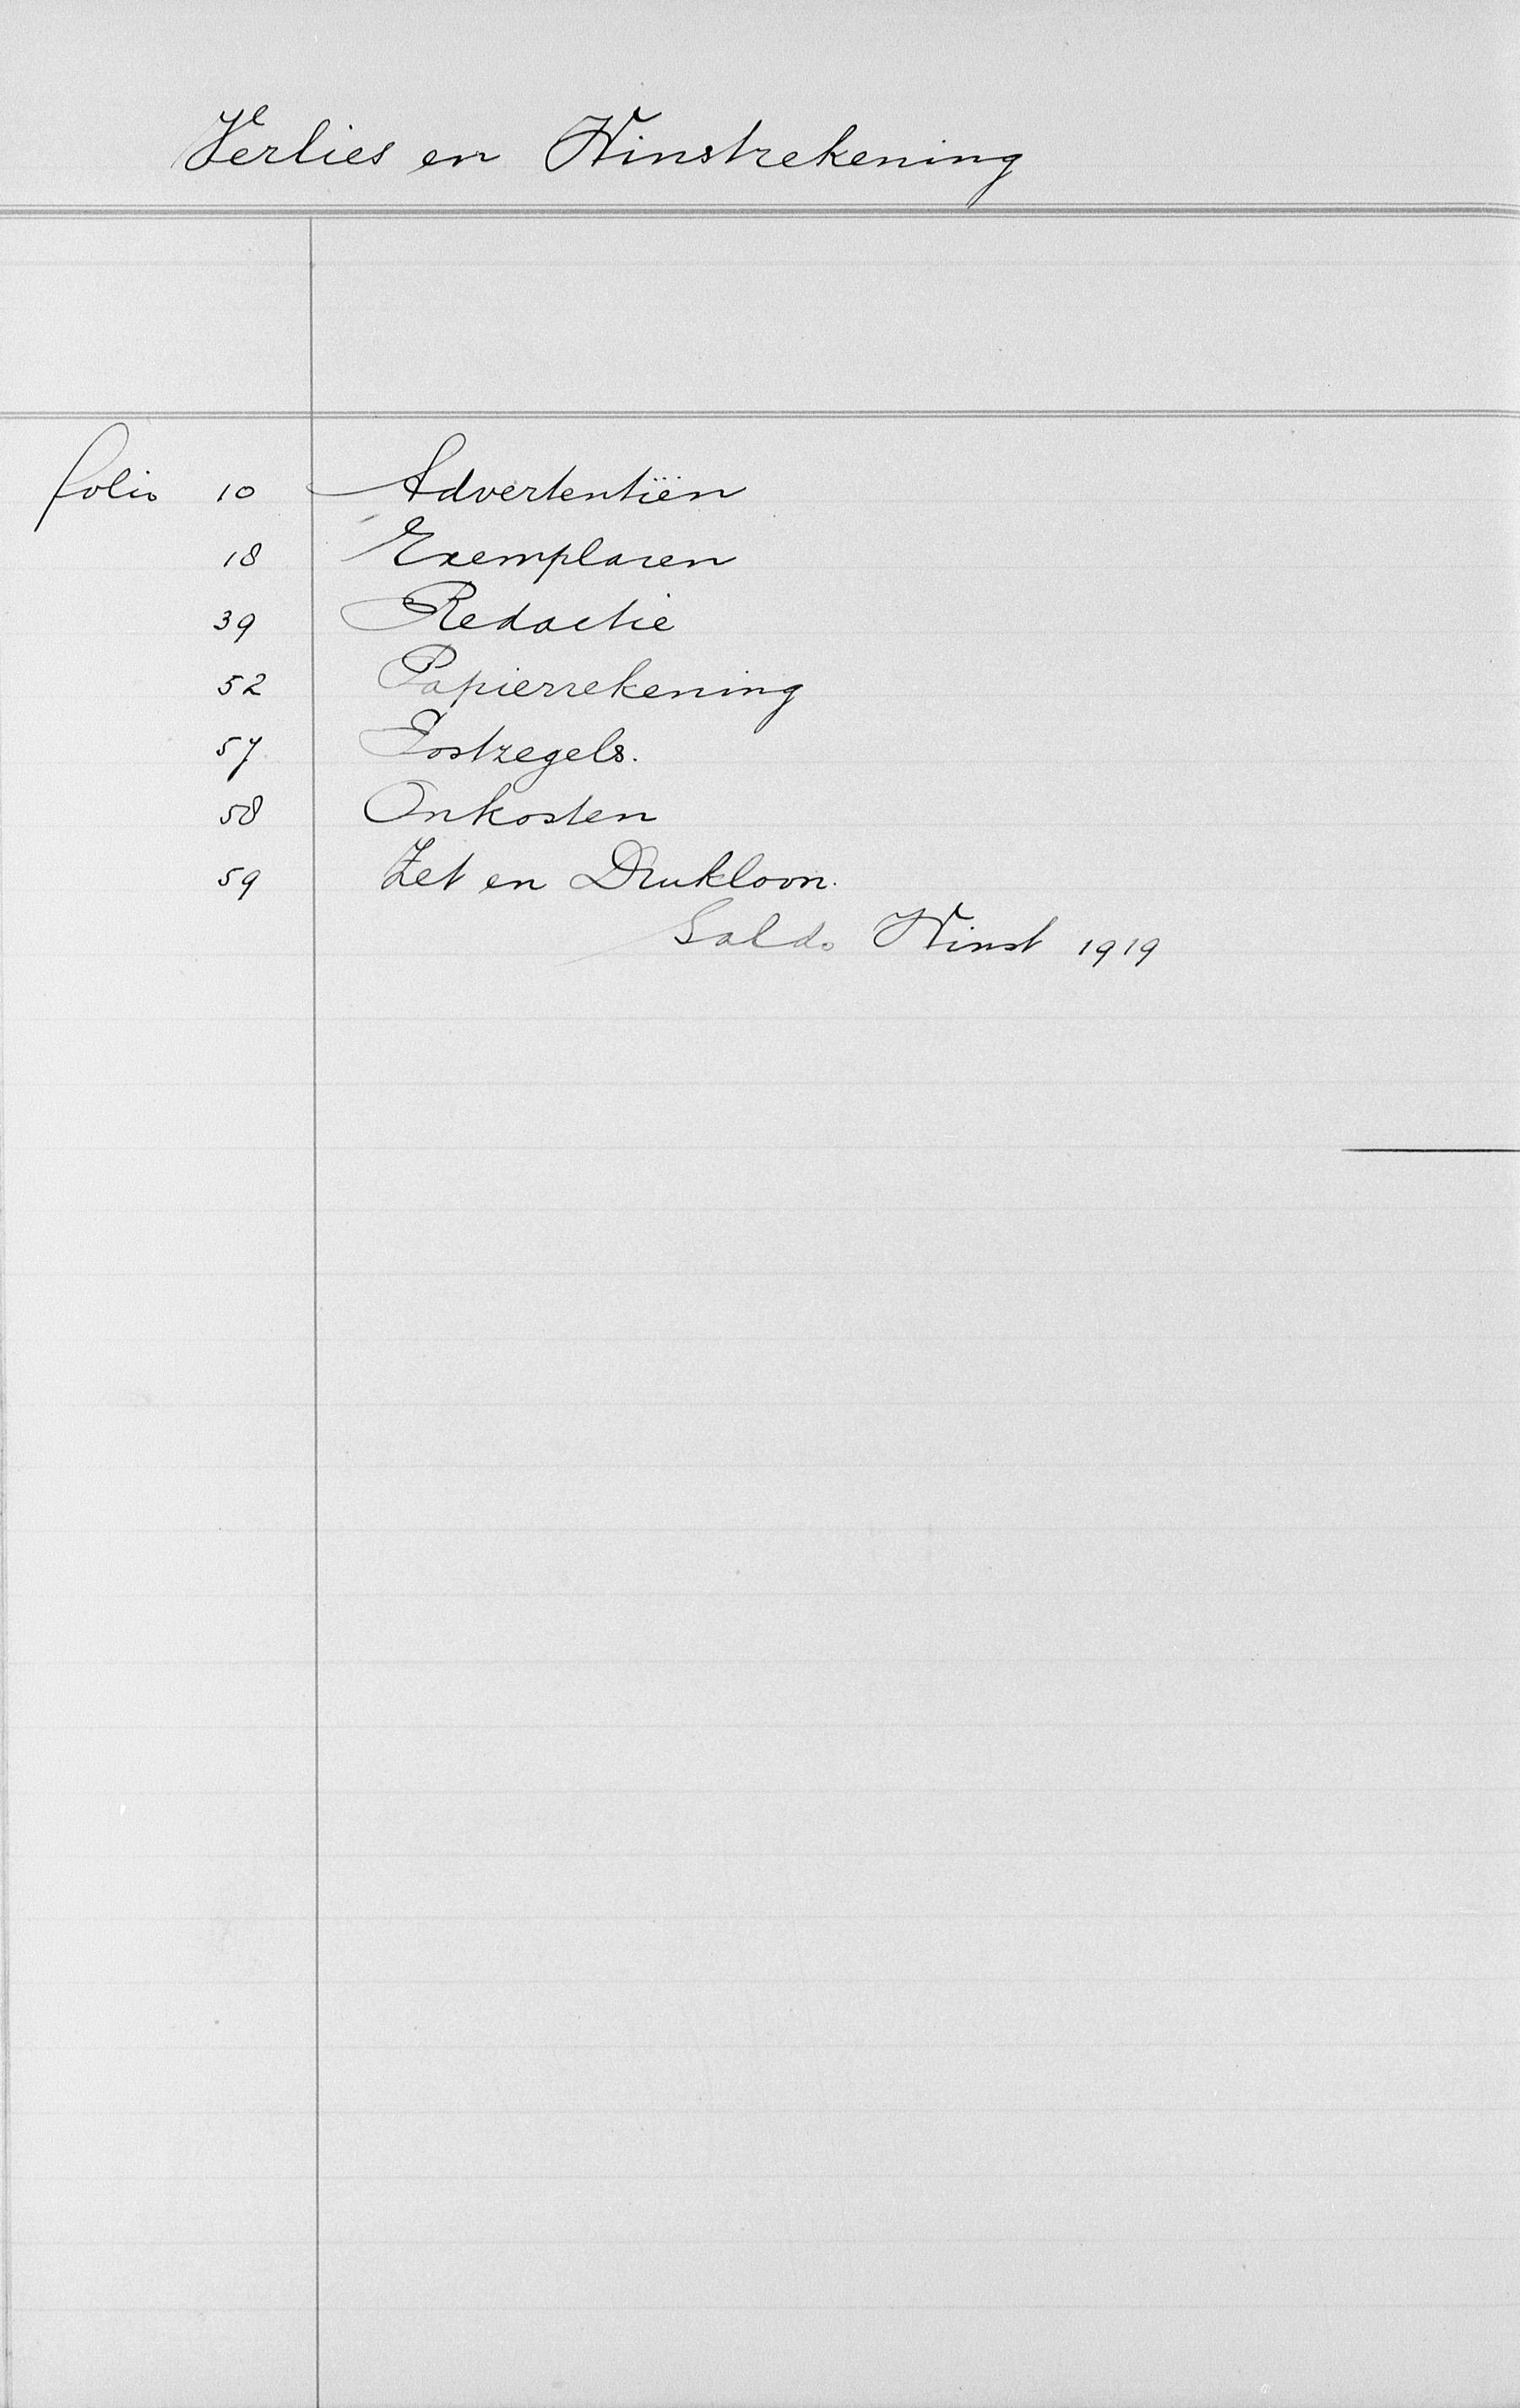 Verlies en Winstrekening
folio 10 Advertentiën
18 Exemplaren
39 Redactie
52 Papierrekening
57 Postzegels.
58 Onkosten
59 Zet en Drukloon.
Saldo Winst 1919